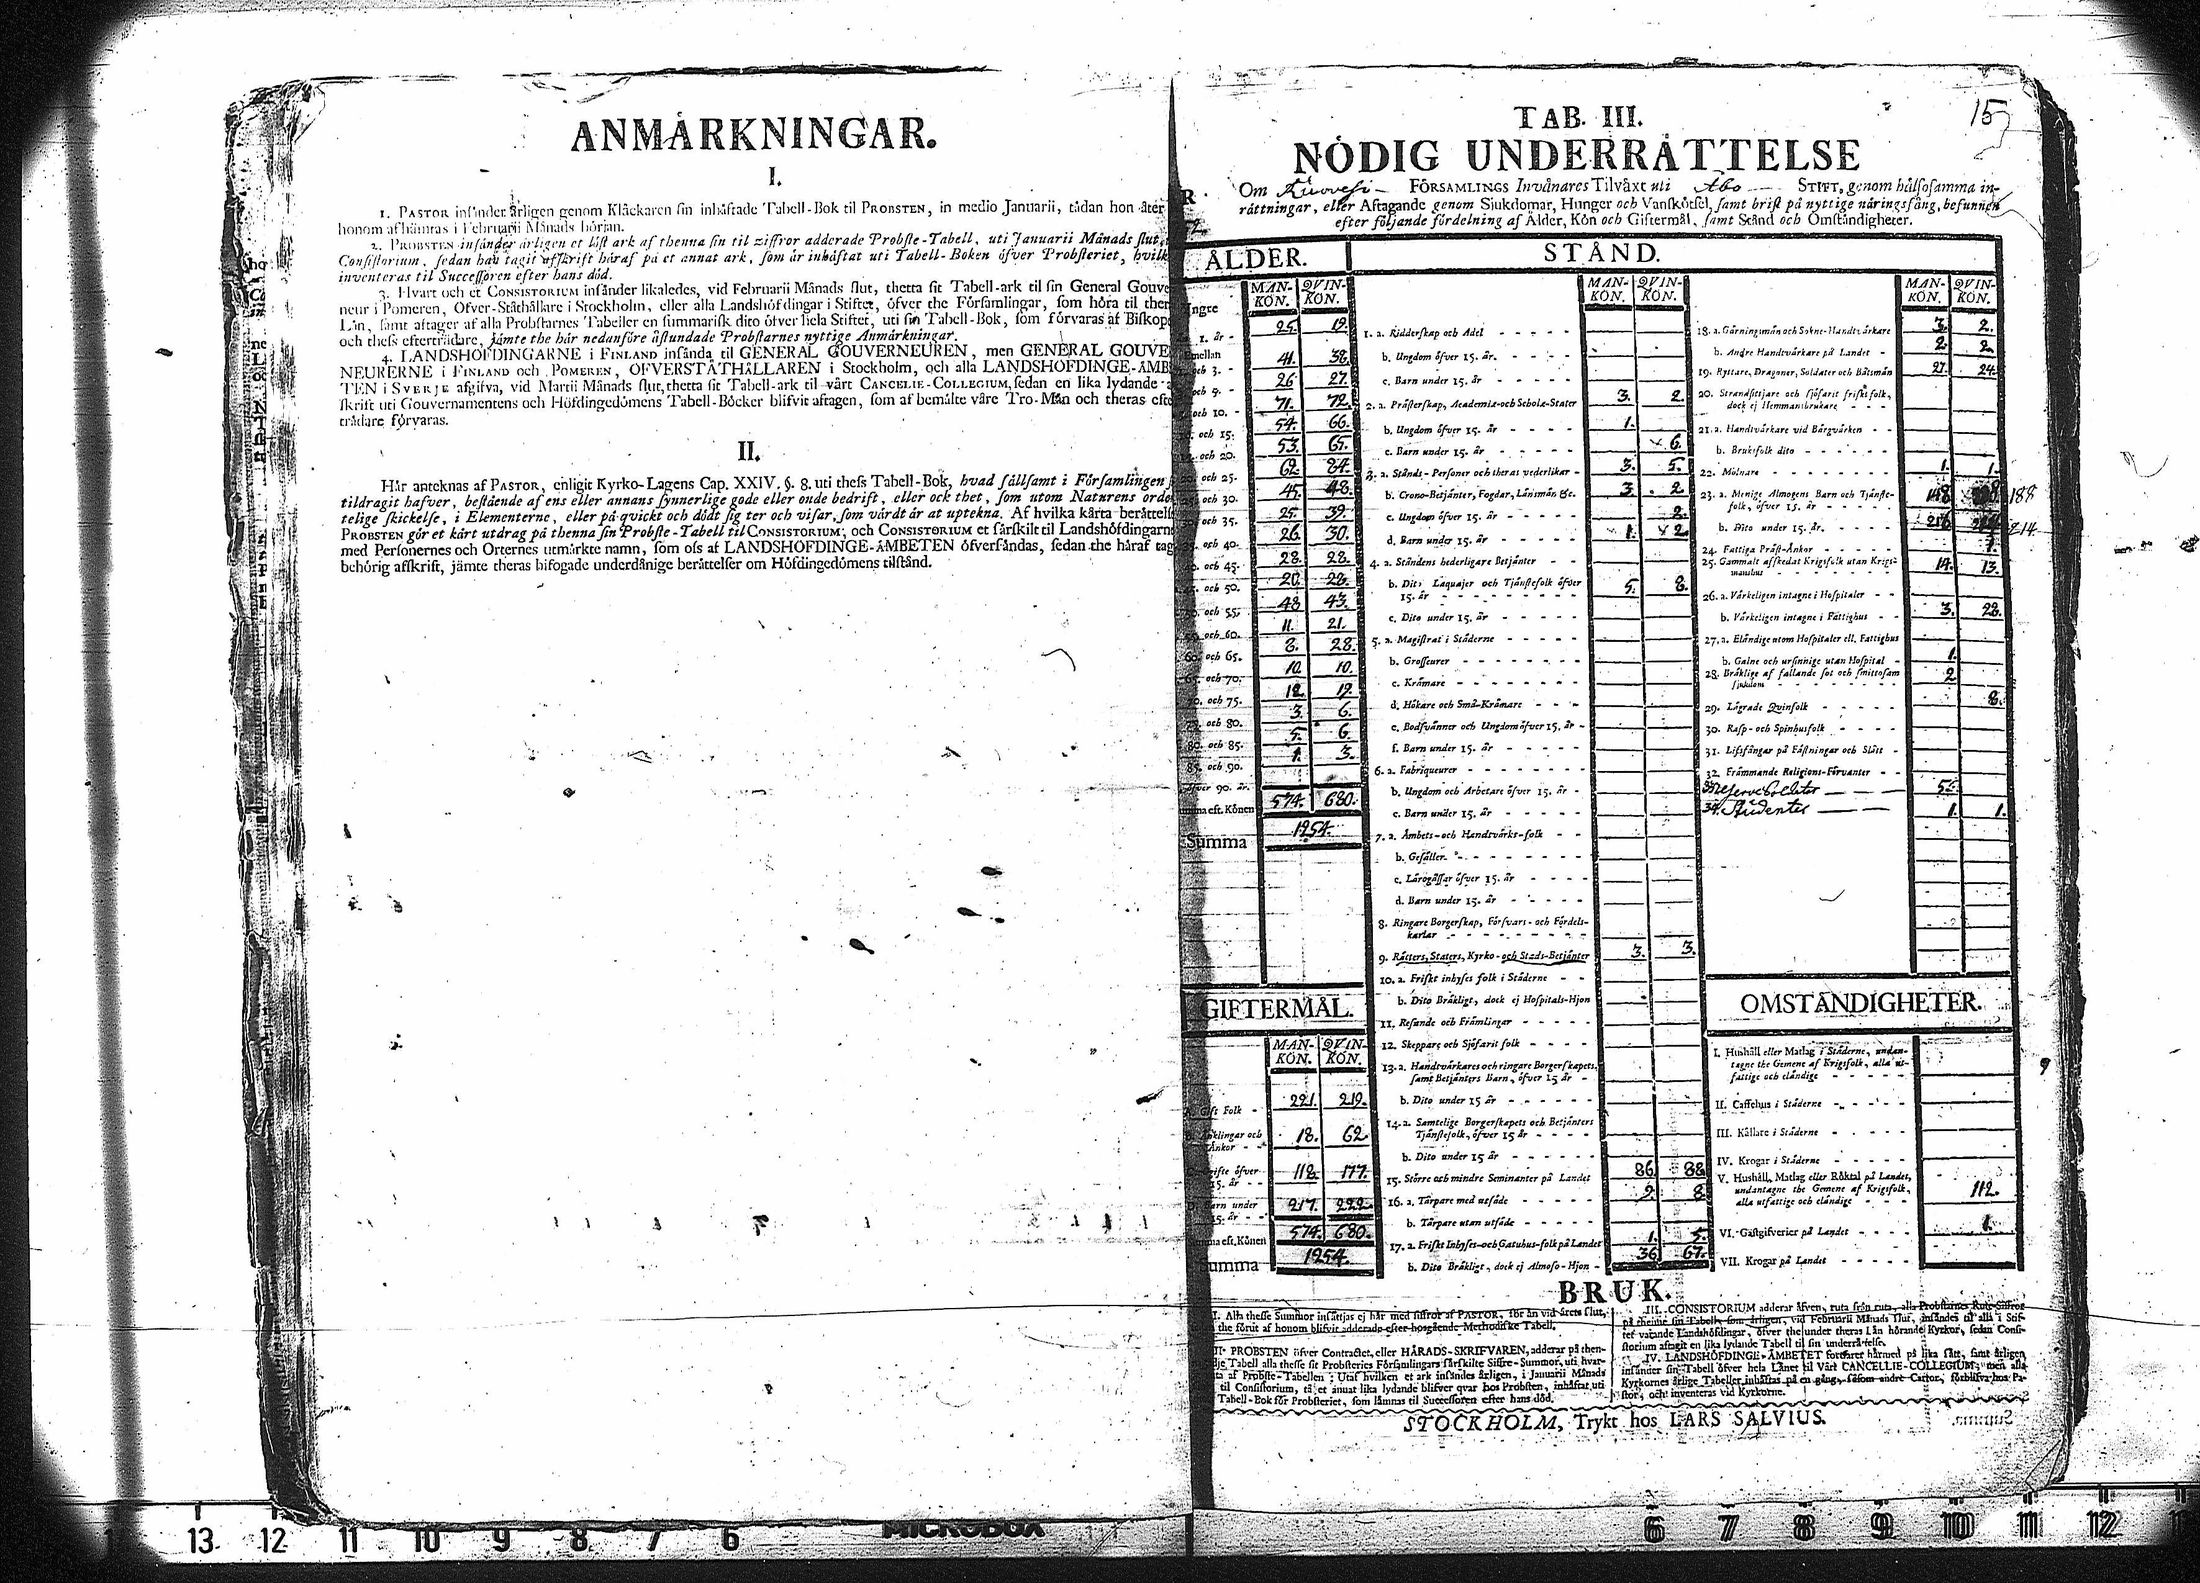 ANMÄRKNINGAR.
I.
1. PASTOR insänder årligen genom Klåckaren sin inhäftade Tabell-Bok til PROBSTEN, in medio Januarii, tådan hon åter
honom afhämtas i Februarii Månads början.
2. PROBSTEN insänder årligen et löst ark af thenna sin til ziffror adderade Probste-Tabell, uti Januarii Månads slut,
Consistorium, sedan han tagit afskrift häraf på et annat ark, som är inhäftat uti Tabell-Boken öfver Probsteriet, hvilk
inventeras til Successoren efter hans död.
3. Hvart och et CONSISTORIUM insänder likaledes, vid Februarii Månads slut, thetta sit Tabell-ark til sin General Gouve
neur i Pomeren, Öfver-Ståthållare i Stockholm, eller alla Landshöfdingar i Stiftet, öfver the Församlingar, som höra til ther
Län, samt aftager af alla Probstarnes Tabeller en summarisk dito öfver hela Stiftet, uti sin Tabell-Bok, som förvaras af Biskop
och thess efterträdare, jämte the här nedanföre åstundade Probstarnes nyttige Anmärkningar.
4. LANDSHÖFDINGARNE i FINLAND insända til GENERAL GOUVERNEUREN, men GENERAL GOUVE
NEURERNE i FINLAND och POMEREN, ÖFVERSTÅTHÅLLAREN i Stockholm, och alla LANDSHÖFDINGE-ÄMB
TEN i SVERJE afgifva, vid Martii Månads slut, thetta sit Tabell-ark til vårt CANCELIE-COLLEGIUM, sedan en lika lydande
skrift uti Gouvernamentens och Höfdingedömens Tabell-Böcker blifvit aftagen, som af bemälte våre Tro-Män och theras efte
trädare förvaras.
II.
Här anteknas af PASTOR, enligit Kyrko-Lagens Cap. XXIV. §. 8. uti thess Tabell-Bok, hvad sällsamt i Församlingen
tildragit hafver, bestående af ens eller annans synnerlige gode eller onde bedrift, eller ock thet, som utom Naturens orde
telige skickelse, i Elementerne, eller på qvickt och dödt sig ter och visar, som värdt är at uptekna. Af hvilka kårta berättels
PROBSTEN gör et kårt utdrag på thenna sin Probste-Tabell til CONSISTORIUM, och CONSISTORIUM et särskilt til Landshöfdingarn
med Personernes och Orternes utmärkte namn, som oss af LANDSHÖFDINGE-ÄMBETEN öfversändas, sedan the häraf tag
behörig afskrift, jämte theras bifogade underdånige berättelser om Höfdingedömens tilstånd.
15
TAB. III.
NÖDIG UNDERRÄTTELSE
Om Kuovesi FÖRSAMLINGS Invånares Tilväxt uti Åbo STIFT, genom hälsosamma in-
rättningar, eller Aftagande genom Sjukdomar, Hunger och Vanskötsel, samt brist på nyttige näringsfång, befunnen
efter följande fördelning af Ålder, Kön och Giftermål, samt Stånd och Omständigheter.
ÅLDER.
MAN-KÖN. QVIN-KÖN.
Yngre
1. år - 25. 19.
mellan
och 3. - 41. 38.
och 9. - 26. 27.
och 10. - 71. 72.
och 15. 54. 66.
och 20. 53. 65.
och 25. 62. 84.
och 30. 45. 48.
och 35. 25. 39.
och 40. 26. 30.
och 45. 28. 28.
och 50. 20. 28.
och 55. 48. 43.
och 60. 11. 21.
60. och 65. 8. 28.
65. och 70. 10. 10.
70. och 75. 12. 19.
75. och 80. 3. 6.
80. och 85. 5. 6.
85. och 90. 1. 3.
öfver 90. år.
Summa eft. Könen 574. 680.
Summa 1254.
GIFTERMÅL.
MAN-KÖN. QVIN-KÖN.
A. Gift Folk - 221. 219.
B. Änklingar och
Änkor - 18. 62.
C. Ogifte öfver
15. år - 118. 177.
D. Barn under
15. år - 217. 222.
Summa eft. Könen 574. 680.
Summa 1254.
STÅND.
MAN-KÖN. QVIN-KÖN.
1. a. Ridderskap och Adel
b. Ungdom öfver 15. år.
c. Barn under 15. år
2. a. Prästerskap, Academiæ-och Scholæ-Stater 3. 2.
b. Ungdom öfver 15. år 1.
c. Barn under 15. år 6.
3. a. Stånds-Personer och theras vederlikar - 3. 5.
b. Crono-Betjänter, Fogdar, Länsmän &c. 3. 2.
c. Ungdom öfver 15. år 2.
d. Barn under 15. år 1. 2.
4. a. Ståndens hederligare Betjänter
b. Dito Laquajer och Tjänstefolk öfver
15. år 5. 8.
c. Dito under 15. år
5. a. Magistrat i Städerne
b. Grosseurer
c. Krämare
d. Hökare och Små-Krämare
e. Bodsvänner och Ungdom öfver 15. år -
f. Barn under 15. år
6. a. Fabriqueurer
b. Ungdom och Arbetare öfver 15. år -
c. Barn under 15. år
7. a. Ämbets-och Handtvärks-folk
b. Gesäller
c. Lärogåssar öfver 15. år
d. Barn under 15. år
8. Ringare Borgerskap, Försvars-och Fördels-
karlar
9. Rätters, Staters, Kyrko-och Stads-Betjänter 3. 3.
10. a. Friskt inhyses folk i Städerne
b. Dito Bräkligt, dock ej Hospitals-Hjon
11. Resande och Främlingar
12. Skeppare och Sjöfarit folk
13. a. Handtvärkares och ringare Borgerskapets,
samt Betjänters Barn, öfver 15 år -
b. Dito under 15 år
14. a. Samtelige Borgerskapets och Betjänters
Tjänstefolk, öfver 15 år
b. Dito under 15 år
15. Större och mindre Seminanter på Landet 86. 88
16. a. Tärpare med utsäde 9. 8
b. Tärpare utan utsäde
17. a. Friskt Inhyses-och Gatuhus-folk på Landet 1. 5.
b. Dito Bräkligt, dock ej Almoso-Hjon - 36 67.
MAN-KÖN. QVIN-KÖN.
18. a. Gärningsmän och Sokne-Handtvärkare 3. 2.
b. Andre Handtvärkare på Landet - 2. 2.
19. Ryttare, Dragoner, Soldater och Båtsmän 27. 24.
20. Strandsittjare och sjöfarit friskt folk,
dock ej Hemmansbrukare
21. a. Handtvärkare vid Bärgvärken
b. Bruksfolk dito
22. Mölnare 1. 1.
23. a. Menige Almogens Barn och Tjänste-
folk, öfver 15. år 148 188
b. Dito under 15. år. 216 214
24. Fattiga Präst-Änkor 1.
25. Gammalt affskedat Krigsfolk utan Krigs-
manshus 14. 13.
26. a. Värkeligen intagne i Hospitaler
b. Värkeligen intagne i Fattighus 3. 28.
27. a. Eländige utom Hospitaler ell. Fattighus
b. Galne och ursinnige utan Hospital - 1.
28. Bräklige af fallande sot och smittosam
sjukdom 2
29. Lägrade Qvinfolk 8.
30. Rasp-och Spinhusfolk
31. Lifsfångar på Fästningar och Slått
32. Främmande Religions-Förvanter
33. Reserve Soldater 5.
34. Studenter 1. 1.
OMSTÄNDIGHETER.
I. Hushåll eller Matlag i Städerne, undan-
tagne the Gemene af Krigsfolk, alla ut-
fattige och eländige
II. Caffehus i Städerne
III. Källare i Städerne
IV. Krogar i Städerne
V. Hushåll, Matlag eller Röktal på Landet,
undantagne the Gemene af Krigsfolk,
alla utfattige och eländige 112.
VI. Gästgifverier på Landet 1.
VII. Krogar på Landet
BRUK.
I. Alla thesse Summor insättjas ej här med siffror af PASTOR, för än vid årets slut,
the förut af honom blifvit adderade efter hosgående Methodiske Tabell.
II. PROBSTEN öfver Contractet, eller HÄRADS-SKRIFVAREN, adderar på then-
Tabell alla thesse sit Probsteries Församlingars särskilte Siffre-Summor, uti hvar-
ta af Probste-Tabellen; Utaf hvilken et ark insändes årligen, i Januarii Månads
til Consistorium, tå et annat lika lydande blifver qvar hos Probsten, inhäftat uti
Tabell-Bok för Probsteriet, som lämnas til Successoren efter hans död.
III. CONSISTORIUM adderar äfven, ruta från ruta, alla Probstarnes Rute-Siffror
på thenne sin Tabell, som årligen, vid Februarii Månads slut, insändes til alla i Stif-
tet varande Landshöfdingar, öfver the under theras Län hörande Kyrkor, sedan Consi-
storium aftagit en lika lydande Tabell til sin underrättelse.
IV. LANDSHÖFDINGE-ÄMBETET fortfarer härmed på lika sätt, samt årligen
insänder sin Tabell öfver hela Länet til Vårt CANCELLIE-COLLEGIUM; men alla
Kyrkornes årlige Tabeller inhäftas på en gång, såsom andre Cartor, förblifva hos Pa-
stor, och inventeras vid Kyrkorne.
STOCKHOLM, Trykt hos LARS SALVIUS.
13 12 11 10 9 8 7 6 MICROBOX 6 7 8 9 10 11 12 11